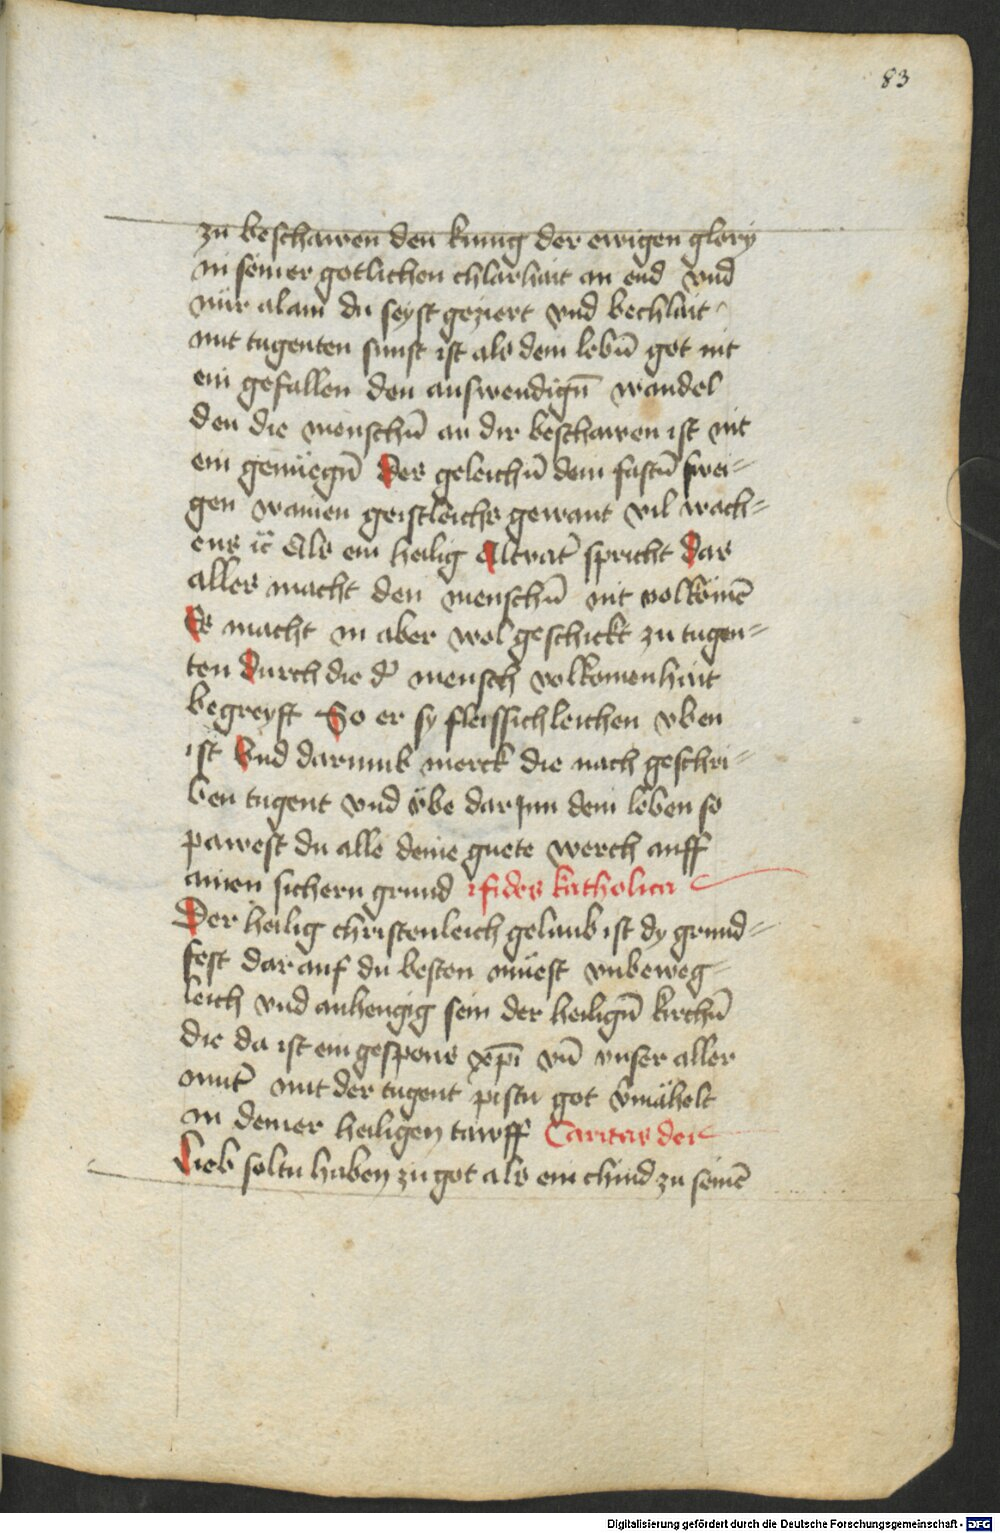 83
zu beschawen den kunig der ewigen glory
in seiner gotlichen chlarhait an end vnd
nür alain du seyst geziert vnd bechlait
mit tugenten sunst ist als dem lebn̄ got nit
ein gefallen den auswendign̄ wandel
den die menschn̄ an dir beschawen ist nit
ein genüegn̄ Des geleichn̄ dein fastn̄ swei=
gen wainen geistleichs gewant vil wach=
ens ꝛc̄ Als ein heilig Altvat̄ spricht Das
alles macht den menschn̄ nit volkömē
Es macht in aber wol geschickt zu tugen=
ten Durch die d̄ mensch volkomenhait
begreyft So er sy fleissichleichen vben
ist Vnd darumb merck die nach geschri=
ben tugent vnd v̈be darInn dein leben so
pawest du alle deine guete werch auff
ainen sichern grund fides katholica
Der heilig christenleich gelaub ist dy grund=
fest dar auf du besten müest vnbeweg=
leich vnd anhengig sein der heilign̄ kirchn̄
die da ist ein gespons xp̄i vn̄ vnser aller
mut̄ mit der tugent pistu got v̄mähelt
in deiner heiligen tawff Caritas der
Lieb soltu haben zu got als ein chind zu seinē
Digitalisierung gefördert durch die Deutsche Forschungsgemeinschaft - DFG